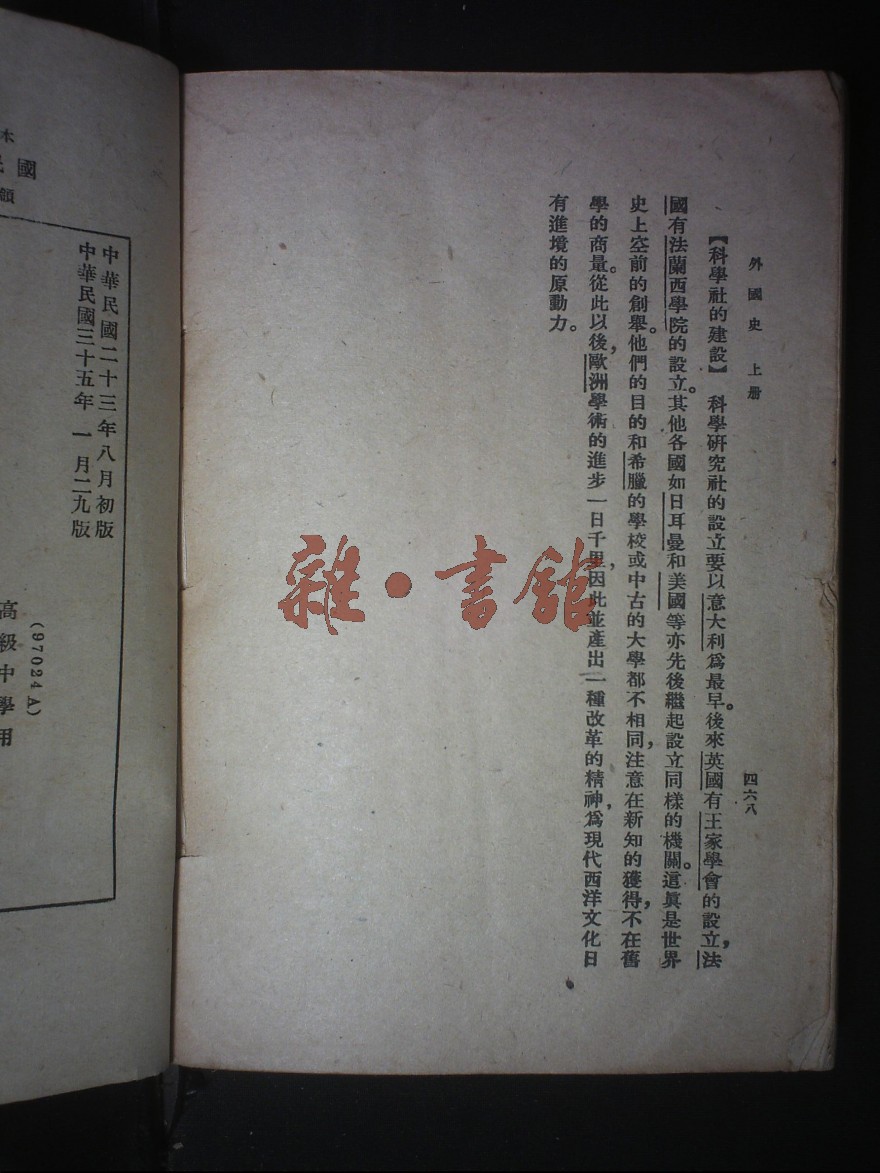 外國史 上册
四六八
【科學社的建設】 科學研究社的設立要以意大利爲最早。後來英國有王家學會的設立，法
國有法蘭西學院的設立。其他各國如日耳曼和美國等亦先後繼起設立同樣的機關。這眞是世界
史上空前的創舉。他們的目的和希臘的學校或中古的大學都不相同，注意在新知的獲得，不在舊
學的商量。從此以後，歐洲學術的進步一日千里，因此並產出一種改革的精神，爲現代西洋文化日
有進境的原動力。
雜·書館
中華民國二十三年八月初版
中華民國三十五年一月二九版
(97024A)
高級中學用
國